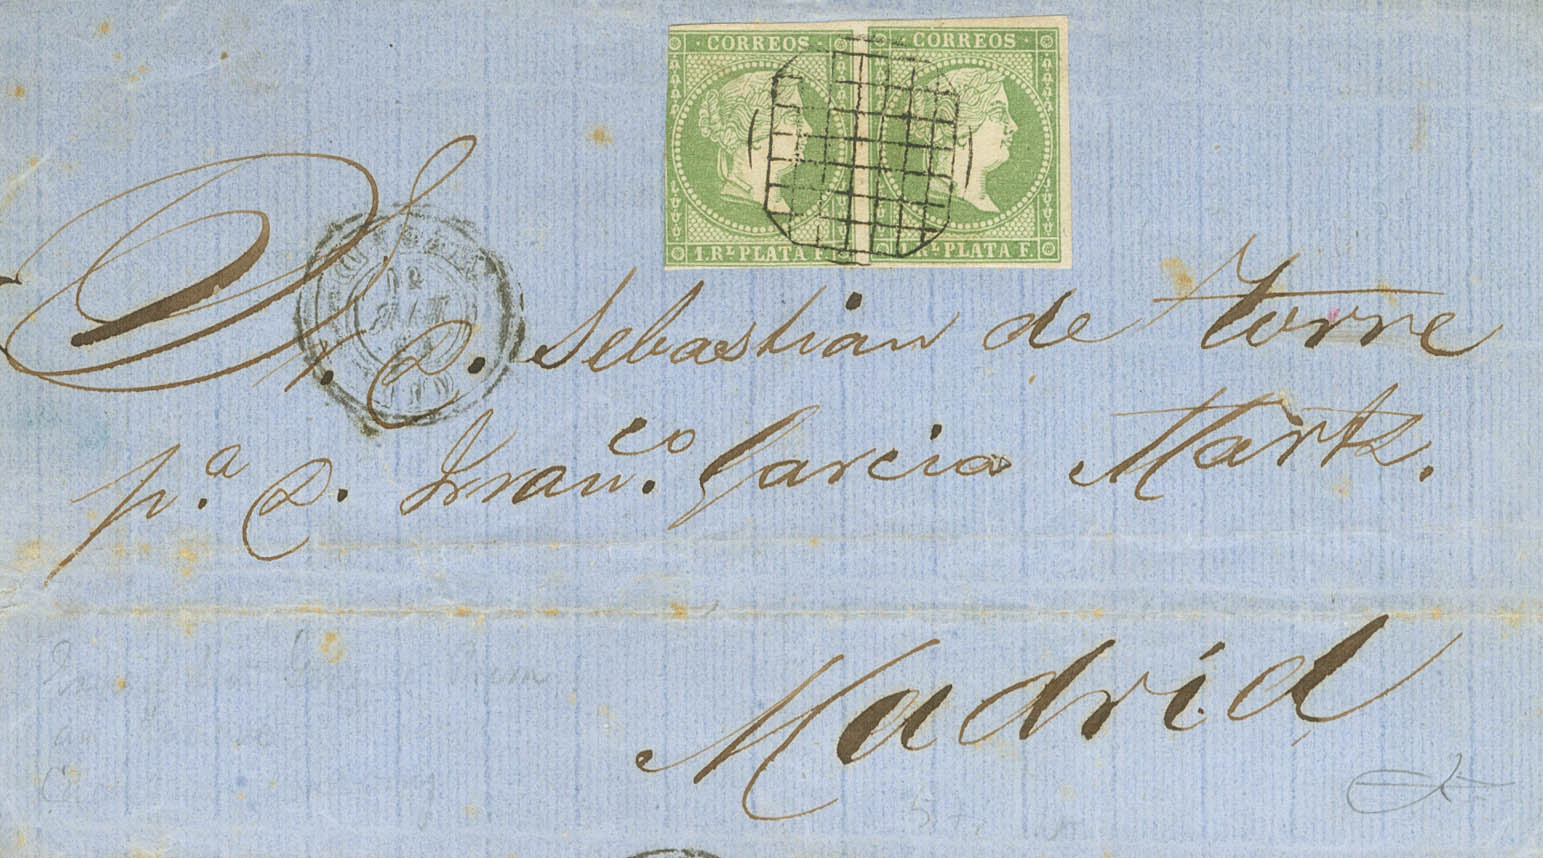 CORREOS CORREOS
1.Rl PLATA F. Rl PLATA F.
Sr. D. Sebastian de Torre
pa. D. Franco. Garcia Martz.
Madrid